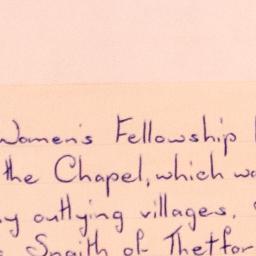 Women's Fellowship
the Chapel, which wa
y outlying villages,
Snaith of Thetfor